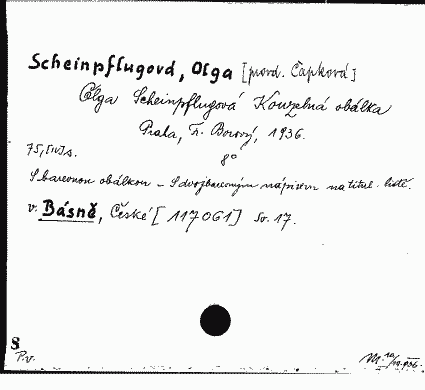 Scheinpflugová, Olga [provd. Čapková]
Olga Scheinpflugová Kouzelná obálka
Praha, Fr. Borový, 1936.
75, [IV] s. 8°
S barevnou obálkou – S dvojbarevným nápisem na titul. listě.
v. Básně, České [117061] Sv. 17.
8
P.v.